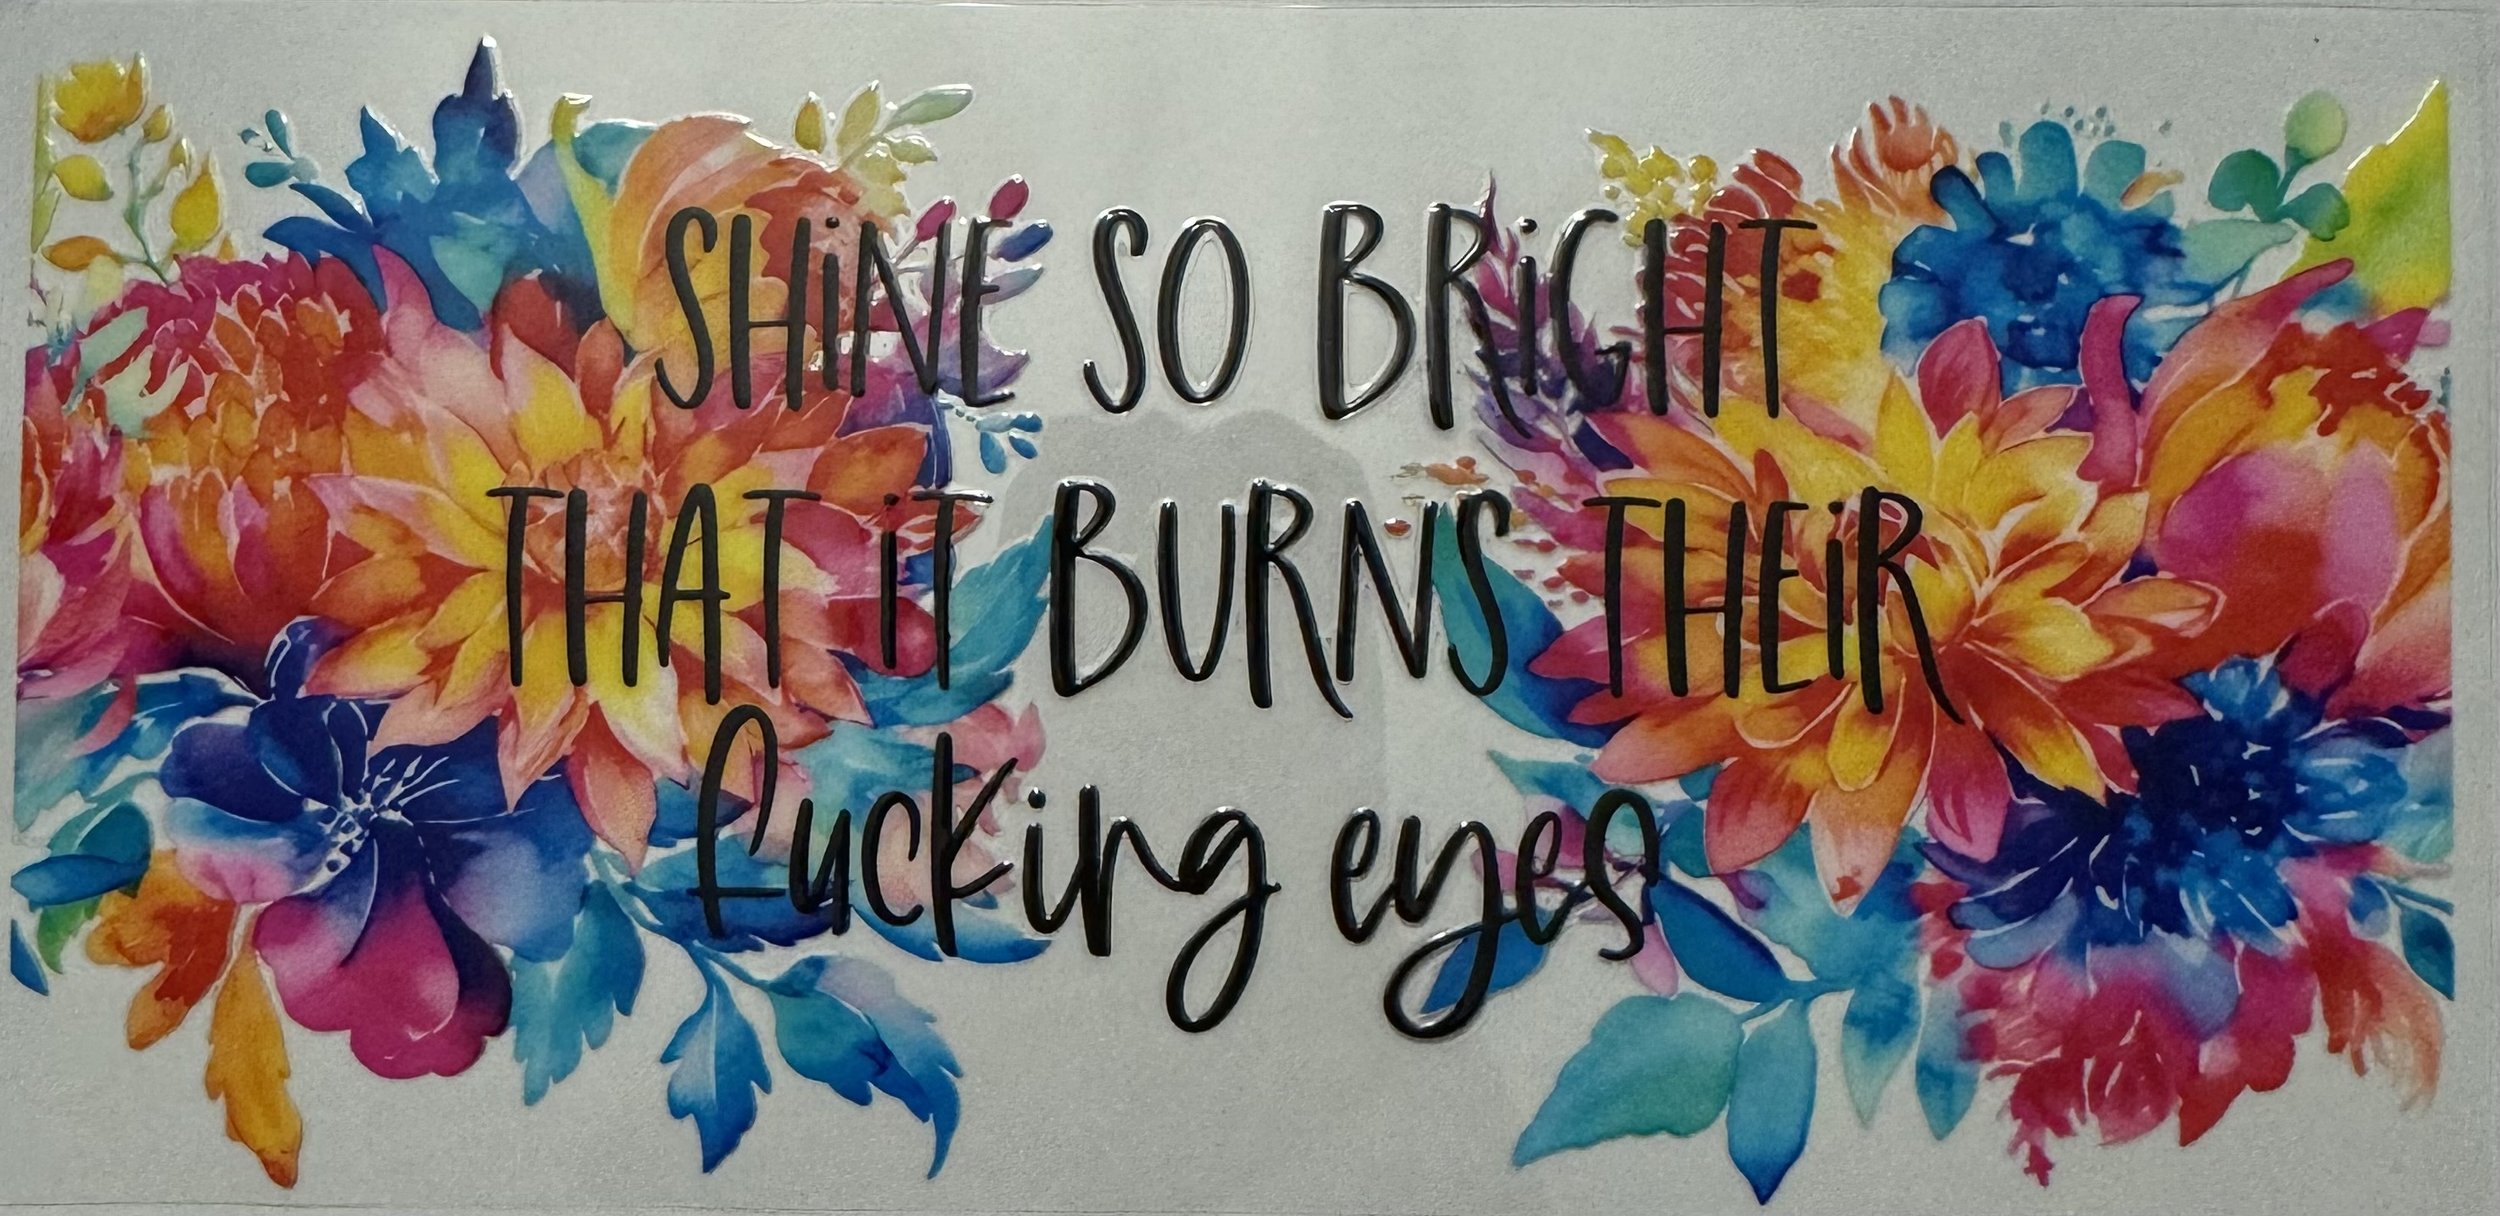 SHiNE SO BRiGHT
THAT iT BURNS THEiR
fucking eyes